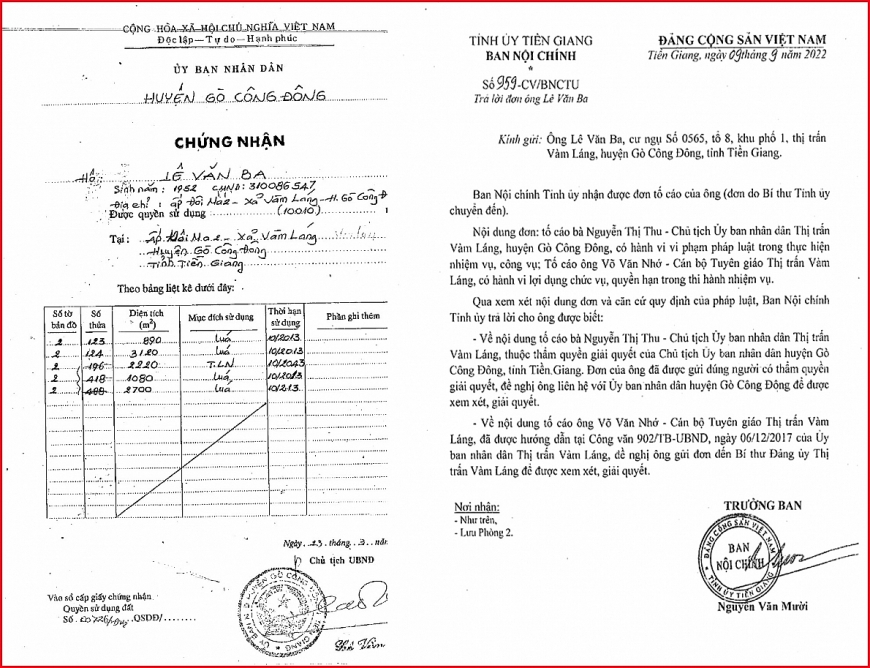 CỘNG HÒA XÃ HỘI CHỦ NGHĨA VIỆT NAM
Độc lập — Tự do — Hạnh phúc
ỦY BAN NHÂN DÂN
HUYỆN GÒ CÔNG ĐÔNG
CHỨNG NHẬN
Hộ: LÊ VĂN BA
Sinh năm: 1952 CMND: 310086547
Địa chỉ: ấp Đôi Ma 2 - Xã Vàm Láng - H. Gò Công Đ
Được quyền sử dụng (10010)
Tại: Ấp Đôi Ma 2 - Xã Vàm Láng
Huyện Gò Công Đông
Tỉnh Tiền Giang
Theo bảng liệt kê dưới đây:
Số tờ bản đồ Số thửa Diện tích (m2) Mục đích sử dụng Thời hạn sử dụng Phần ghi thêm
2 123 890 Luá 10/2013
2 124 3120 luá 10/2013
2 196 2220 T.LN 10/2043
2 418 1080 luá 10/2013
2 2700 luá 10/213
Ngày..23.tháng..3..năm
Chủ tịch UBND
Vào sổ cấp giấy chứng nhận
Quyền sử dụng đất
Số QSDĐ/
TỈNH ỦY TIỀN GIANG
BAN NỘI CHÍNH
*
Số 959-CV/BNCTU
Trả lời đơn ông Lê Văn Ba
ĐẢNG CỘNG SẢN VIỆT NAM
Tiền Giang, ngày 09 tháng 9 năm 2022
Kính gửi: Ông Lê Văn Ba, cư ngụ Số 0565, tổ 8, khu phố 1, thị trấn
Vàm Láng, huyện Gò Công Đông, tỉnh Tiền Giang.
Ban Nội chính Tỉnh ủy nhận được đơn tố cáo của ông (đơn do Bí thư Tỉnh ủy
chuyển đến).
Nội dung đơn: tố cáo bà Nguyễn Thị Thu - Chủ tịch Ủy ban nhân dân Thị trấn
Vàm Láng, huyện Gò Công Đông, có hành vi vi phạm pháp luật trong thực hiện
nhiệm vụ, công vụ; Tố cáo ông Võ Văn Nhớ - Cán bộ Tuyên giáo Thị trấn Vàm
Láng, có hành vi lợi dụng chức vụ, quyền hạn trong thi hành nhiệm vụ.
Qua xem xét nội dung đơn và căn cứ quy định của pháp luật, Ban Nội chính
Tỉnh ủy trả lời cho ông được biết:
- Về nội dung tố cáo bà Nguyễn Thị Thu - Chủ tịch Ủy ban nhân dân Thị trấn
Vàm Láng, thuộc thẩm quyền giải quyết của Chủ tịch Ủy ban nhân dân huyện Gò
Công Đông, tỉnh Tiền Giang. Đơn của ông đã được gửi đúng người có thẩm quyền
giải quyết, đề nghị ông liên hệ với Ủy ban nhân dân huyện Gò Công Đông để được
xem xét, giải quyết.
- Về nội dung tố cáo ông Võ Văn Nhớ - Cán bộ Tuyên giáo Thị trấn Vàm
Láng, đã được hướng dẫn tại Công văn 902/TB-UBND, ngày 06/12/2017 của Ủy
ban nhân dân Thị trấn Vàm Láng, đề nghị ông gửi đơn đến Bí thư Đảng ủy Thị
trấn Vàm Láng để được xem xét, giải quyết.
Nơi nhận:
- Như trên,
- Lưu Phòng 2.
TRƯỞNG BAN
ĐẢNG CỘNG SẢN VIỆT NAM
BAN
NỘI CHÍNH
TỈNH ỦY TIỀN GIANG
Nguyễn Văn Mười